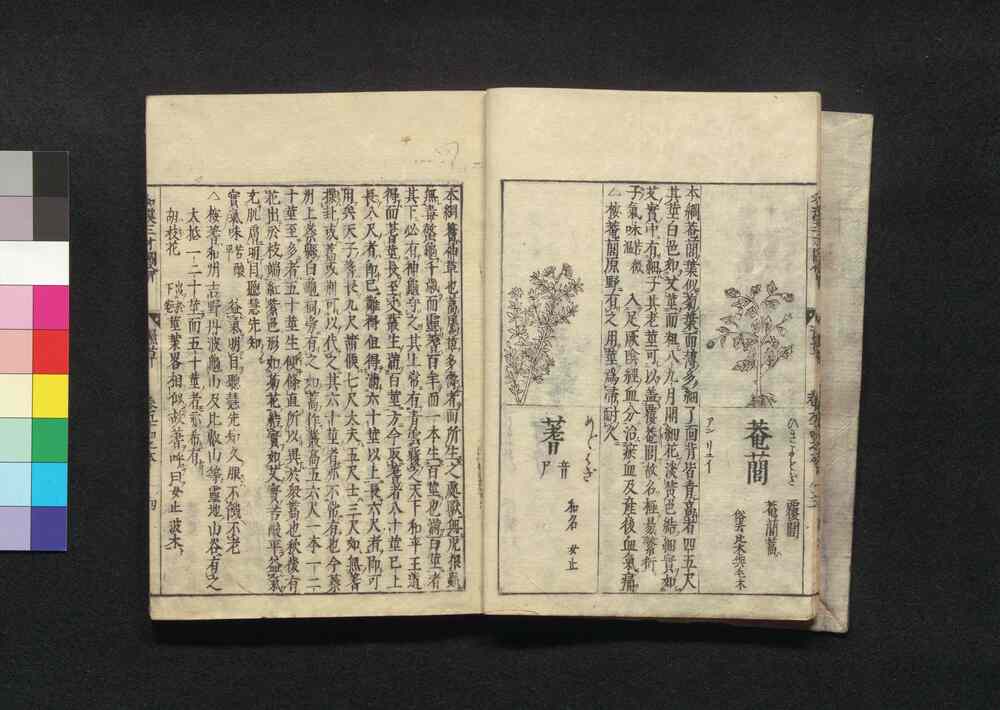 菴䕡
覆閭
菴䕡蒿
アン リユイ
本綱菴䕡葉似菊葉而薄多細了面背皆青高者四五尺
其莖白色如艾莖而粗八九月開細花淡黄色結細實如
艾實中有細子其老莖可以蓋覆菴閭故名極易繁衍
子氣味 入足厥陰經血分治瘀血及産後血氣痛
△按菴䕡原野有之用莖爲箒耐久
蓍
めどはぎ
音尸
和名 女止
本綱蓍神草也蒿屬草多壽者而所生之處獸無虎狼蟲
無毒螫龜千歳而靈蓍百年而一本生百莖也滿百莖者
其下必有神龜守之其上常有青雲覆之天下和平王道
得而蓍莖長丈叢生滿百莖方今取蓍者八十莖已上
長八尺者即已難得但得滿六十莖以上長六尺者即可
用矣天子蓍長九尺諸侯七尺大夫五尺士三尺如無蓍
揲卦或荊或 可以代之其六十莖者亦不常有也今蔡
州上蔡縣白龜祠旁有之如蒿作叢高五六尺一本一二
十莖至多者五十莖生便條直所以異於衆蒿也秋後有
花出於枝端紅紫色形如菊花結實如艾實苦酸平益氣
充肌膚明目聰慧先知
實氣味苦酸平 益氣明目聰慧先知久服不饑不老
△按蓍和州吉野丹波龜山及比叡山等靈地山谷有之
大抵一二十莖而五十莖者亦希有
胡枝花 莖葉畧相似故蓍呼曰女止波木